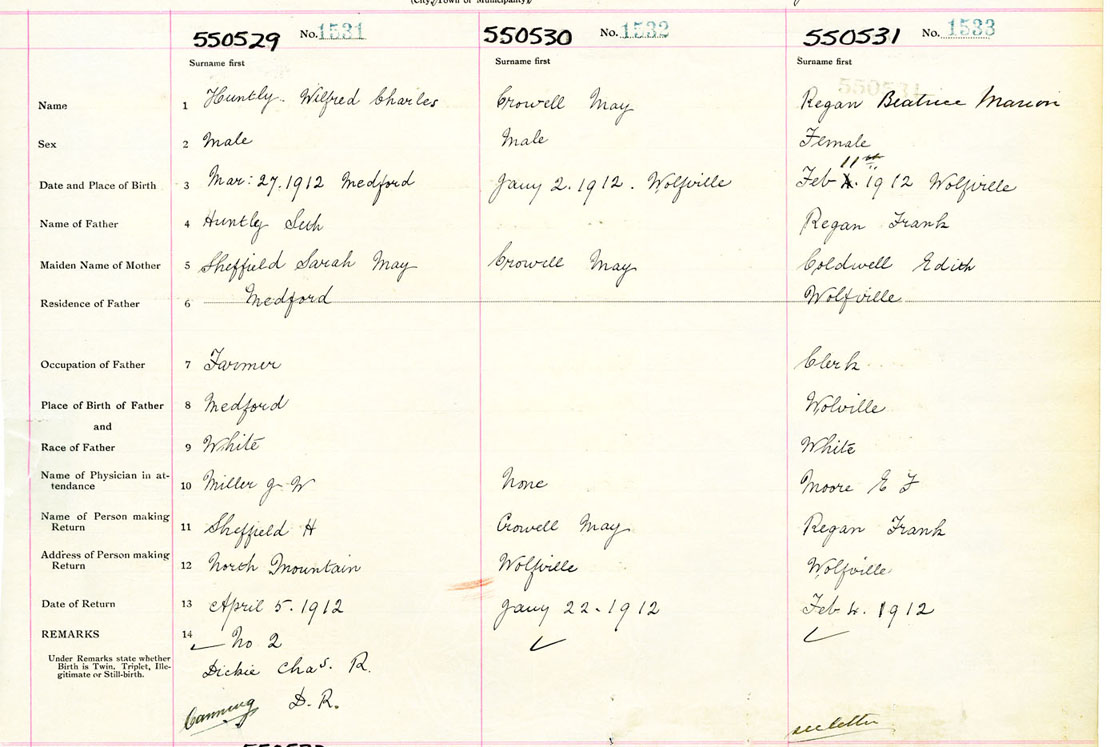 (City, Town or Municipality)
550529 No. 1531 550530 No. 1532 550531 No. 1533
Surname first Surname first Surname first
550531
Name 1 Huntly. Wilfred Charles Crowell May Regan Beatrice Marion
Sex 2 Male Male Female
11th
Date and Place of Birth 3 Mar: 27. 1912 Medford Jany 2. 1912. Wolfville Feb . 1912 Wolfville
Name of Father 4 Huntly Regan Frank
Maiden Name of Mother 5 Sheffield Sarah May Crowell May Coldwell Edith
Residence of Father 6 Medford Wolfville
Occupation of Father 7 Farmer Clerk
Place of Birth of Father 8 Medford Wolville
and
Race of Father 9 White White
Name of Physician in at-
tendance 10 Miller J W None Moore E F
Name of Person making
Return 11 Sheffield H Crowell May Regan Frank
Address of Person making
Return 12 North Mountain Wolfville Wolfville
Date of Return 13 April 5. 1912 Jany 22 - 1912 Feb 4. 1912
REMARKS 14 No 2
Under Remarks state whether
Birth is Twin, Triplet, Ille-
gitimate or Still-birth.
Dickie Chas. R.
Canning D. R.
see letter